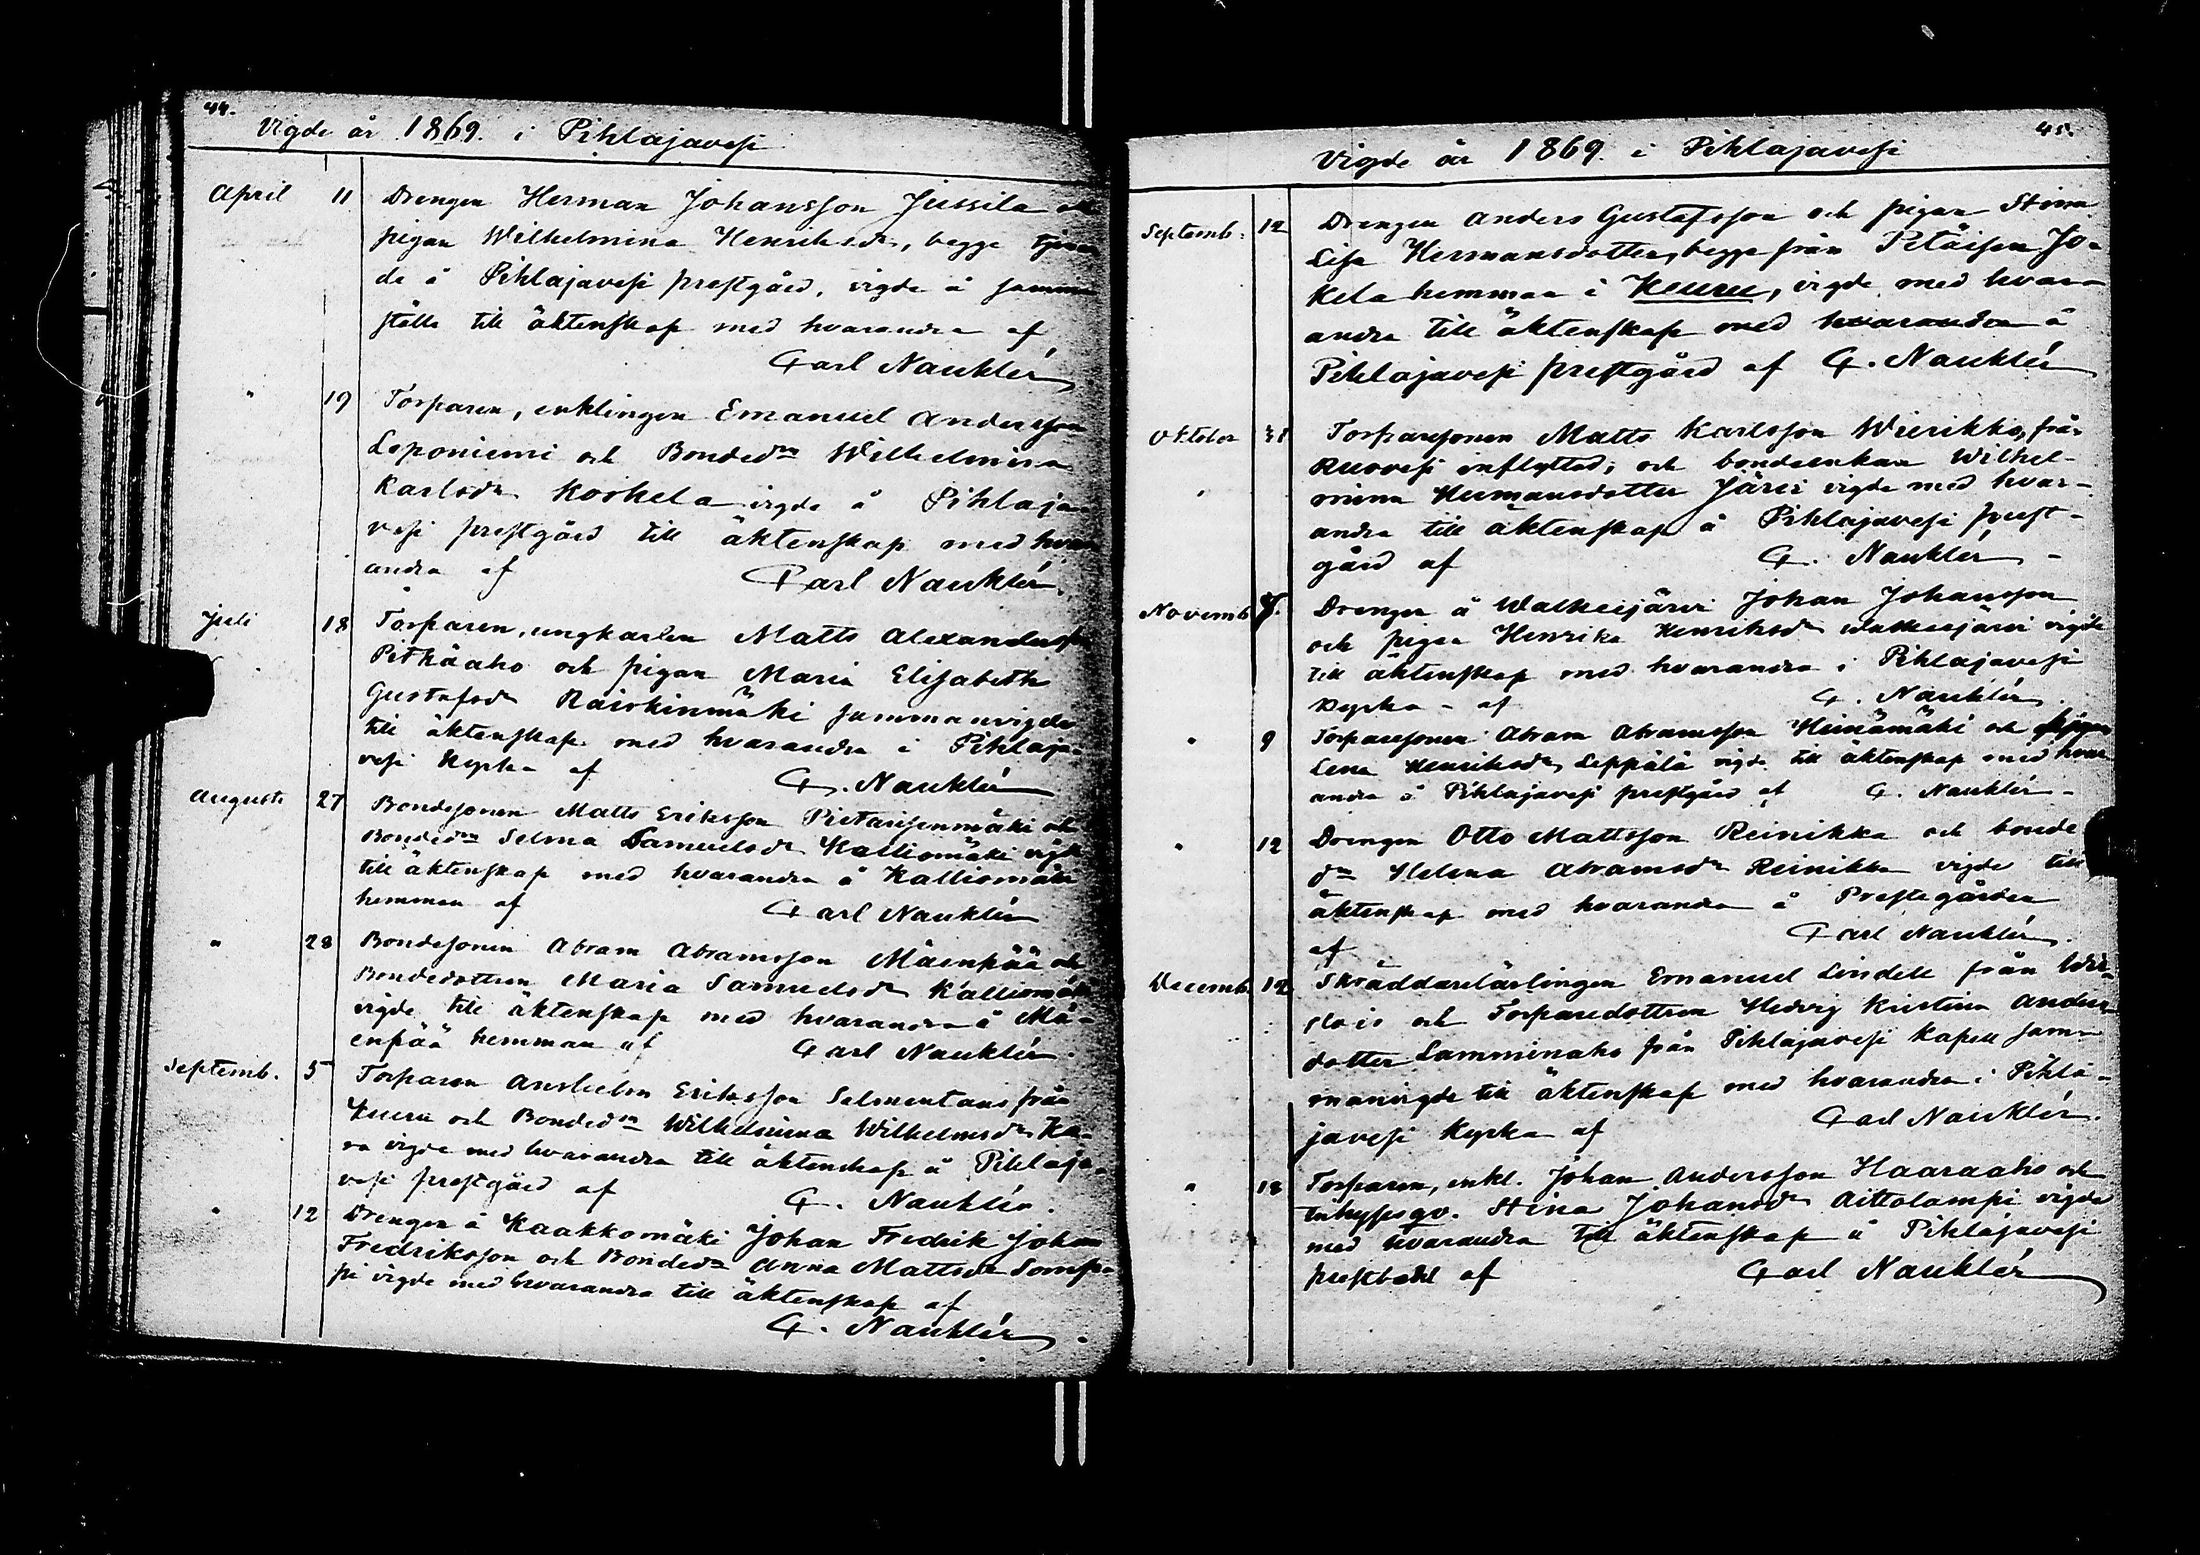 44.
Vigde år 1869. i Pihlajavesi
April 11 Drengen Herman Johansson Jussila och
pigan Wilhelmina Henriksdr, begge tjenan
de å Pihlajavesi prestgård, vigde å samma
ställe till äktenskap med hvarandra af
Carl Nauklér
" 19 Torparen, enklingen Emanuel Andersson
Leponiemi och Bondedn Wilhelmina
Karlsdr Koskela vigde å Pihlaja-
vesi prestgård till äktenskap med hvar
andra af Carl Nauklér.
Juli 18 Torparen, ungkarlen Matts Alexandersson
Pitkäaho och pigan Maria Elisabeth
Gustafsdr Raiskinmäki sammanvigde
till äktenskap med hvarandra i Pihlaja-
vesi Kyrka af C. Nauklér
Augusti 27 Bondesonen Matts Eriksson Pietarisenmäki och
Bondedn Selma Samuelsdr Kalliomäki vigde
till äktenskap med hvarandra å Kalliomäki
hemman af Carl Nauklér
" 28 Bondesonen Abram Abramsson Mäenpää och
Bondedottren Maria Samuelsdr Kalliomäki
vigde till äktenskap med hvarandra å Mä-
enpää hemman af Carl Nauklér.
Septemb. 5 Torparen Anshelm Eriksson Selmentaus från
Keuru och Bondedn Wilhelmina Wilhelmsdr Ka-
ra vigde med hvarandra till äktenskap å Pihlaja-
vesi prestgård af C. Nauklér.
" 12 Drengen å Kaakkomäki Johan Fredrik Johan
Fredriksson och Bondedn Anna Mattsdr Somp-
pi vigde med hvarandra till äktenskap af
C. Nauklér.
45.
Vigde år 1869. i Pihlajavesi
Septemb. 12 Drengen Anders Gustafsson och pigan Stina
Lisa Hermansdotter, begge från Petäisen Jo-
kela hemman i Keuru, vigde med hvar-
andra till äktenskap med hvarandra å
Pihlajavesi prestgård af C. Nauklér
Oktober 31 Torparesonen Matts Karlsson Wierikko, från
Ruovesi inflyttad, och bondeenkan Wilhel-
mina Hermansdotter Järvi vigde med hvar-
andra till äktenskap å Pihlajavesi prest-
gård af C. Nauklér -
Novemb. 7. Drengen å Walkeejärvi Johan Johansson
och pigan Henrika Henriksdr Walkeejärvi vigde
till äktenskap med hvarandra i Pihlajavesi
Kyrka - af C. Nauklér.
" 9 Torparesonen Abram Abramsson Heinämäki och pigan
Lena Henriksdr Leppälä vigde till äktenskap med hvar
andra å Pihlajavesi prestgård af C. Nauklér -
" 12 Drengen Otto Mattsson Reinikka och bonde
dn Helena Abramsdr Reinikka vigde till
äktenskap med hvarandra å Prestegården
af Carl Nauklér.
Decemb. 12 Skräddarelärlingen Emanuel Lindell från Wir-
dois och Torparedottren Hedvig Kristina Anders-
dotter Lamminaho från Pihlajavesi Kapell sam-
manvigde till äktenskap med hvarandra i Pihla-
javesi Kyrka af Carl Nauklér.
" 18 Torparen, enkl. Johan Andersson Haaraaho och
inhysesqv. Stina Johansdr Aittolampi vigde
med hvarandra till äktenskap å Pihlajavesi
prestbohl af Carl Nauklér